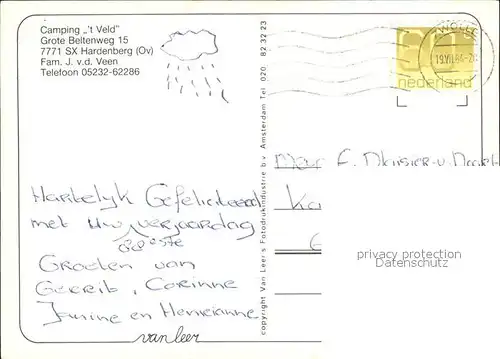 Camping „'t Veld"
Grote Beltenweg 15
7771 SX Hardenberg (Ov)
Fam. J. v.d. Veen
Telefoon 05232-62286
ZWOLLE
19.VII.84-2
60
nederland
copyright Van Leer's Fotodrukindustrie b.v. Amsterdam Tel 020 - 82 32 23
Hartelyk Gefeliciteerd
met uw verjaardag
Beste
Groeten van
Gerrit, Corinne
Janine en Hennianne
Mevr F.
Ka
6
privacy protection
Datenschutz
van leer